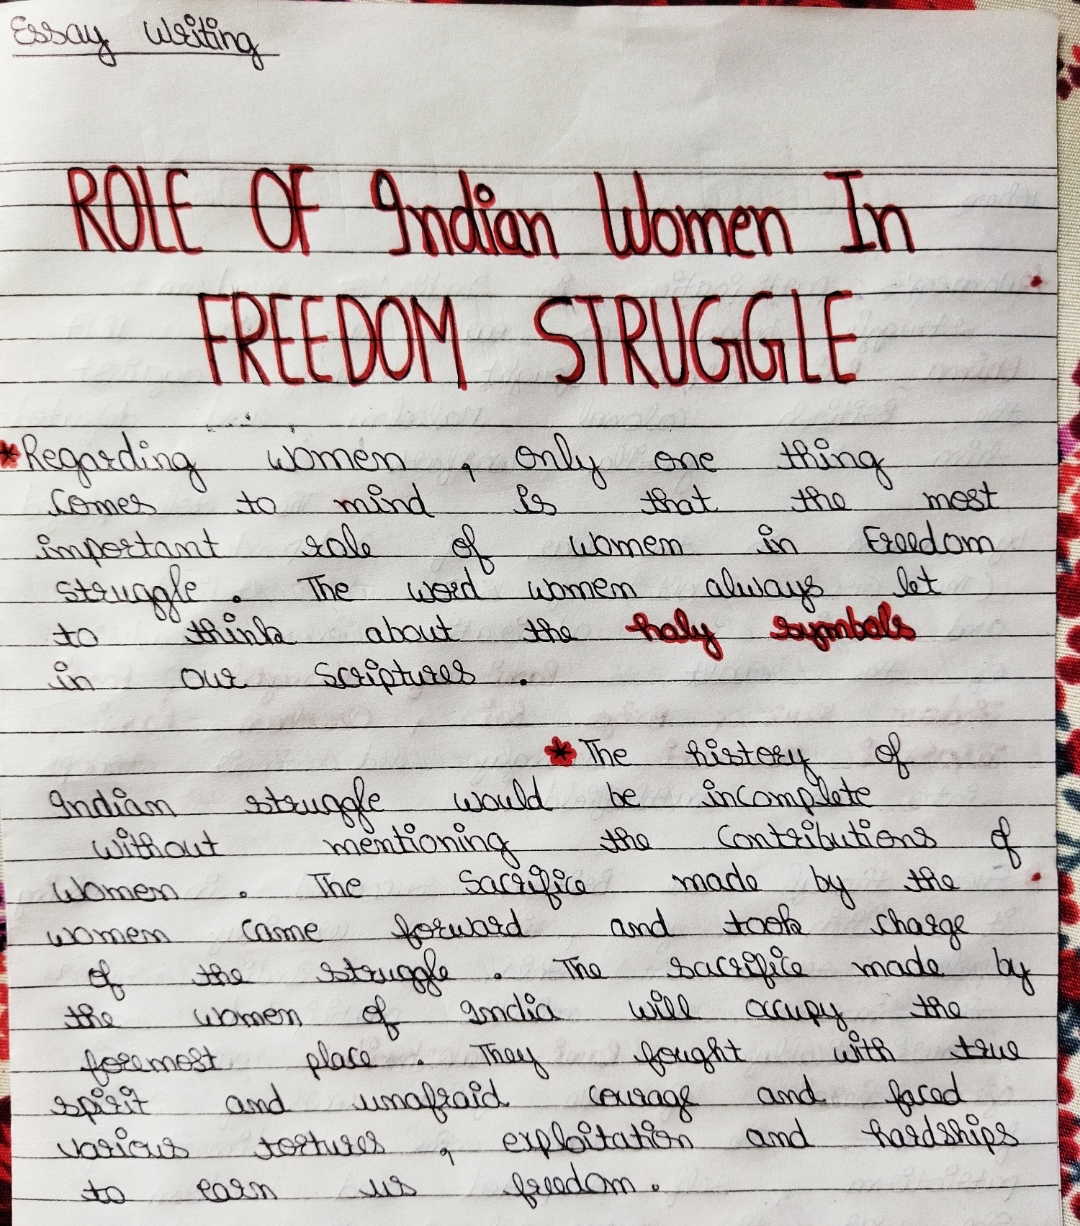 Essay Writing
ROLE OF Indian Women In
FREEDOM STRUGGLE
*Regarding women, only one thing
comes to mind is that the most
important role of women in Freedom
struggle. The word women always let
to think about the holy symbols
in our Scriptures.
*The history of
Indian struggle would be incomplete
without mentioning the contributions of
women. The Sacrifice made by the
women came forward and took charge
of the struggle. The sacrifice made by
the women of India will occupy the
foremost place. They fought with true
spirit and unafraid courage and faced
various tortures, exploitation and hardships
to earn us freedom.